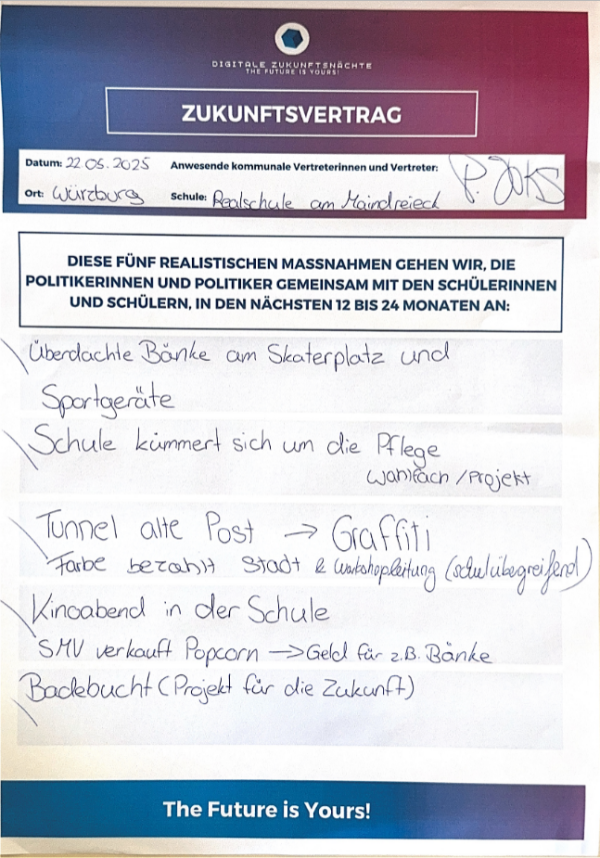 DIGITALE ZUKUNFTSNÄCHTE
THE FUTURE IS YOURS!
ZUKUNFTSVERTRAG
Datum: 22.05.2025 Anwesende kommunale Vertreterinnen und Vertreter:
Ort: Würzburg Schule: Realschule am Maindreieck
DIESE FÜNF REALISTISCHEN MASSNAHMEN GEHEN WIR, DIE
POLITIKERINNEN UND POLITIKER GEMEINSAM MIT DEN SCHÜLERINNEN
UND SCHÜLERN, IN DEN NÄCHSTEN 12 BIS 24 MONATEN AN:
Überdachte Bänke am Skaterplatz und
Sportgeräte
Schule kümmert sich um die Pflege
Wahlfach / Projekt
Tunnel alte Post → Graffiti
Farbe bezahlt Stadt & Workshopleitung (schulübegreifend)
Kinoabend in der Schule
SMV verkauft Popcorn → Geld für z.B. Bänke
Badebucht (Projekt für die Zukunft)
The Future is Yours!